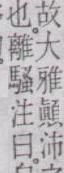 故大雅顚沛
也離騷注曰